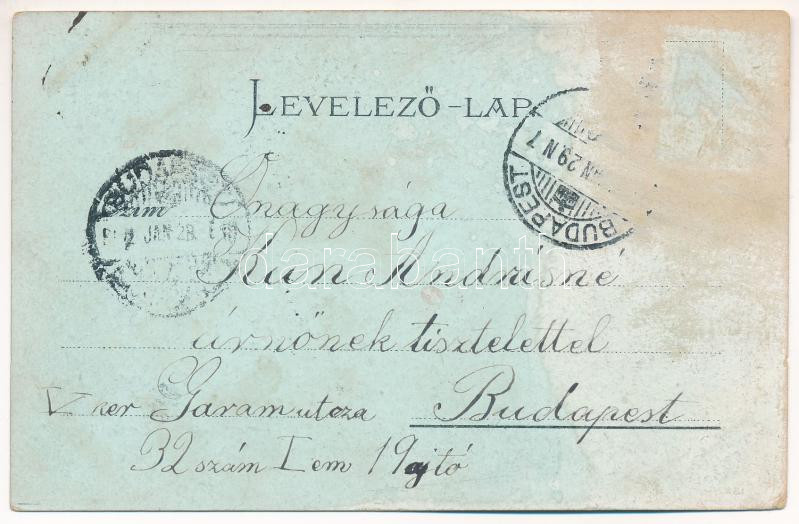 LEVELEZŐ-LAP
BUDAPEST
29 N 7
BUDAPEST
JAN 28
Őnagysága
Kun Andrisné
úrnőnek tisztelettel
V ker Garam utcza Budapest
32 szám I em 19 ajtó
darabanth